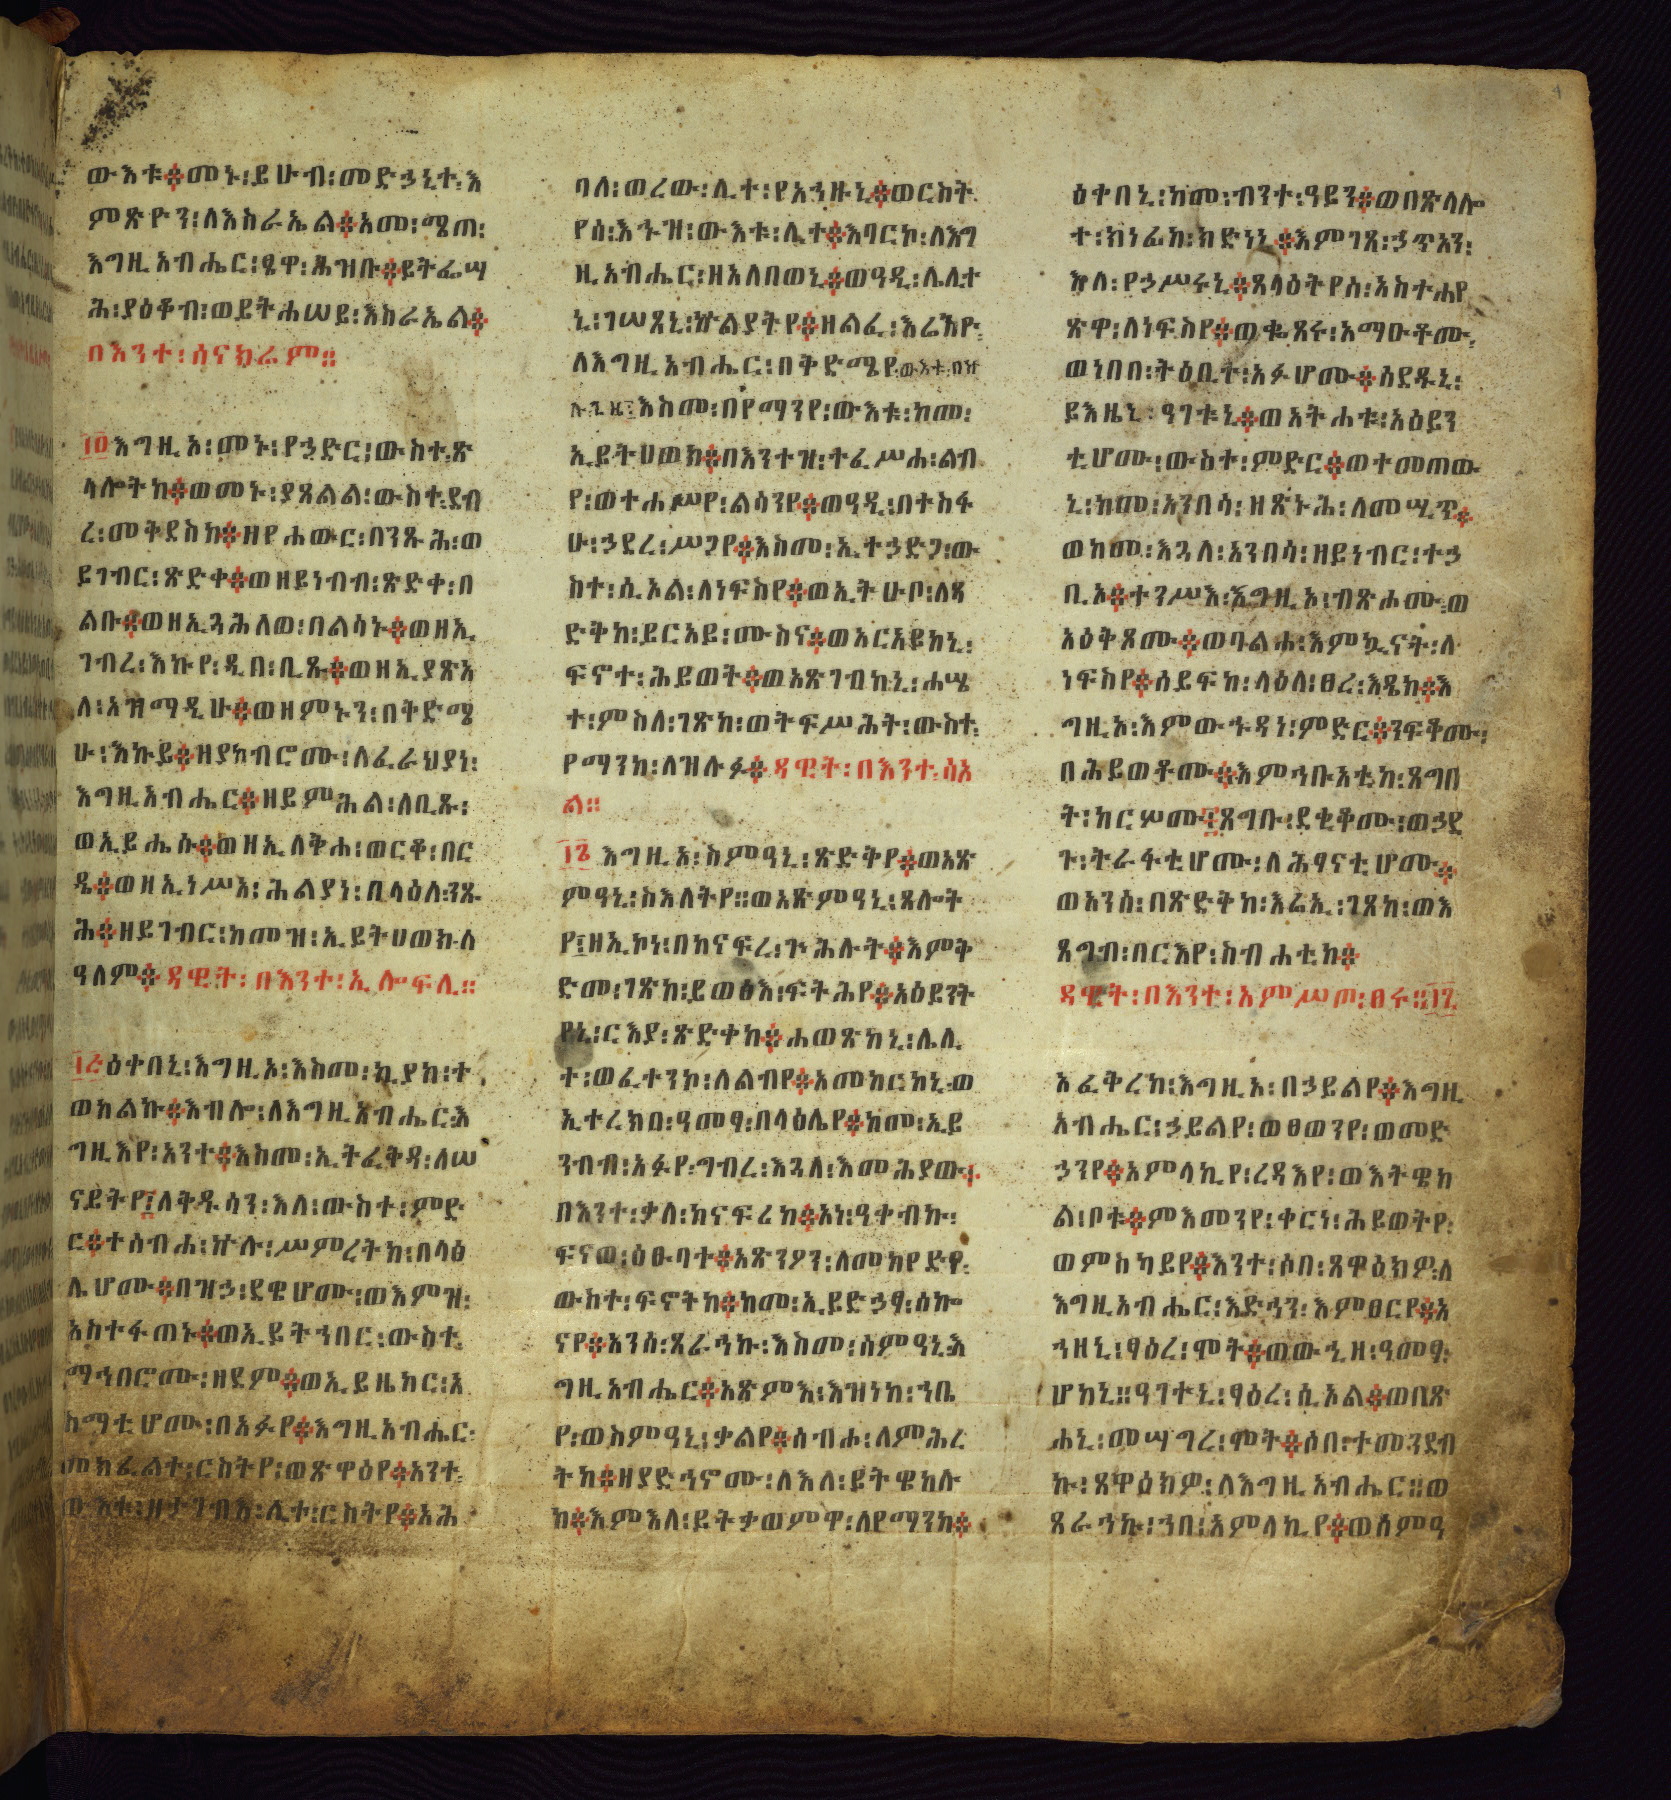 ውእቱ፨መኑ፡ይሁብ፡መድኃኒተ፡እ
ምጽዮን፡ለእስራኤል፨አመ፡ሜጠ፡
እግዚአብሔር፡ፄዋ፡ሕዝቡ፨ይትፌሣ
ሕ፡ያዕቆብ፡ወይትሐሠይ፡እስራኤል፨
በእንተ፡ሰናክሬም።
፲፬እግዚኦ፡መኑ፡የኃድር፡ውስተ፡ጽ
ላሎትከ፨ወመኑ፡ያጸልል፡ውስተ፡ደብ
ረ፡መቅደስከ፨ዘየሐውር፡በንጹሕ፡ወ
ይገብር፡ጽድቀ፨ወዘይነብብ፡ጽድቀ፡በ
ልቡ፨ወዘኢጓሕለወ፡በልሳኑ፨ወዘኢ
ገብረ፡እኩየ፡ዲበ፡ቢጹ፨ወዘኢያጽአ
ለ፡አዝማዲሁ፨ወዘምኑን፡በቅድሜ
ሁ፡እኩይ፨ዘያከብሮሙ፡ለፈራህያነ፡
እግዚአብሔር፨ዘይምሕል፡ለቢጹ፡
ወኢይሔሱ፨ወዘኢለቅሐ፡ወርቆ፡በር
ዴ፨ወዘኢነሥአ፡ሕልያነ፡በላዕለ፡ንጹ
ሕ፨ዘይገብር፡ከመዝ፡ኢይትሀወክ፡ለ
ዓለም፨ዳዊት፡በእንተ፡ኢሎፍሊ።
፲፭ዕቀበኒ፡እግዚኦ፡እስመ፡ኪያከ፡ተ
ወከልኩ፨እብሎ፡ለእግዚአብሔር፡እ
ግዚእየ፡አንተ፨እስመ፡ኢትፈቅዳ፡ለሠ
ናይትየ፤ለቅዱሳን፡እለ፡ውስተ፡ምድ
ር፨ተሰብሐ፡ኵሉ፡ሥምረትከ፡በላዕ
ሌሆሙ፨በዝኃ፡ደዌሆሙ፡ወእምዝ፡
አስተፋጠኑ፨ወኢይትኀበር፡ውስተ
ማኅበሮሙ፡ዘደም፨ወኢይዜከር፡አ
ስማቲሆሙ፡በአፉየ፨እግዚአብሔር፡
መክፈልተ፡ርስትየ፡ወጽዋዕየ፨አንተ
ውእቱ፡ዘታገብእ፡ሊተ፡ርስትየ፨አሕ
ባለ፡ወረው፡ሊተ፡የአኀዙኒ፨ወርስት
የሰ፡እኁዝ፡ውእቱ፡ሊተ፨እባርኮ፡ለእግ
ዚአብሔር፡ዘአለበወኒ፨ወዓዲ፡ሌሊተ
ኒ፡ገሠጸኒ፡ኵልያትየ፨ዘልፈ፡እሬእዮ፡
ለእግዚአብሔር፡በቅድሜየ፡ውእቱ፡በዝ
ሉ፡ጊዜ፤እስመ፡በየማንየ፡ውእቱ፡ከመ፡
ኢይትሀወክ፨በእንተዝ፡ተፈሥሐ፡ልብ
የ፡ወተሐሥየ፡ልሳንየ፨ወዓዲ፡በተስፋ
ሁ፡ኃደረ፡ሥጋየ፨እስመ፡ኢተኃድጋ፡ው
ስተ፡ሲኦል፡ለነፍስየ፨ወኢትሁቦ፡ለጻ
ድቅከ፡ይርአይ፡ሙስና፨ወአርአይከኒ፡
ፍኖተ፡ሕይወት፨ወአጽገብከኒ፡ሐሤ
ተ፡ምስለ፡ገጽከ፡ወትፍሥሕት፡ውስተ፡
የማንከ፡ለዝሉፉ፨ዳዊት፡በእንተ፡ሳአ
ል።
፲፮እግዚኦ፡ስምዓኒ፡ጽድቅየ፨ወአጽ
ምዓኒ፡ስእለትየ፡፡ወአጽምዓኒ፡ጸሎት
የ፤ዘኢኮነ፡በከናፍረ፡ጕሕሉት፨እምቅ
ድመ፡ገጽከ፡ይወፅእ፡ፍትሕየ፨አዕይንት
የኒ፡ርእያ፡ጽድቀከ፨ሐወጽከኒ፡ሌሊ
ተ፡ወፈተንኮ፡ለልብየ፨አመከርከኒ፡ወ
ኢተረክበ፡ዓመፃ፡በላዕሌየ፨ከመ፡ኢይ
ንብብ፡አፉየ፡ግብረ፡እጓለ፡እመሕያው፨
በእንተ፡ቃለ፡ከናፍሪከ፨አነ፡ዓቀብኩ፡
ፍናወ፡ዕፁባተ፨አጽንዖን፡ለመከየድየ፡
ውስተ፡ፍኖትከ፨ከመ፡ኢይድኃፃ፡ሰኰ
ናየ፨አንሰ፡ጸራኅኩ፡እስመ፡ሰምዓኒ፡እ
ግዚአብሔር፨አጽምእ፡እዝነከ፡ኀቤ
የ፡ወስምዓኒ፡ቃልየ፨ሰብሐ፡ለምሕረ
ትከ፨ዘያድኀኖሙ፡ለእለ፡ይትዌከሉ
ከ፨እምእለ፡ይትቃወምዋ፡ለየማንከ፨
ዕቀበኒ፡ከመ፡ብንተ፡ዓይን፨ወበጽላሎ
ተ፡ክነፊከ፡ክድነኒ፨እምገጸ፡ኃጥአን፡
እለ፡የኃሥሩኒ፨ጸላዕትየሰ፡አስተሐየ
ጽዋ፡ለነፍስየ፨ወቈጸሩ፡አማዑቶሙ፡
ወነበበ፡ትዕቢተ፡አፉሆሙ፨ሰደዱኒ፡
ይእዜኒ፡ዓገቱኒ፨ወአትሐቱ፡አዕይን
ቲሆሙ፡ውስተ፡ምድር፨ወተመጠው
ኒ፡ከመ፡አንበሳ፡ዘጽኑሕ፡ለመሢጥ፨
ወከመ፡እጓለ፡አንበሳ፡ዘይነብር፡ተኃ
ቢኦ፨ተንሥእ፡እግዚኦ፡ብጽሖሙ፡ወ
አዕቅጾሙ፨ወባልሐ፡እምኲናት፡ለ
ነፍስየ፨ሰይፍከ፡ላዕለ፡ፀረ፡እዴከ፨እ
ግዚኦ፡እምውኁዳነ፡ምድር፨ንፍቆሙ፡
በሕይወቶሙ፨እምኀቡአቲከ፡ጸግበ
ት፡ከርሦሙ፤ጸግቡ፡ደቂቆሙ፡ወኃደ
ጉ፡ትራፋቲሆሙ፡ለሕፃናቲሆሙ፨
ወአንሰ፡በጽድቅከ፡እሬኢ፡ገጸከ፡ወእ
ጸግብ፡በርእየ፡ስብሐቲከ፨
ዳዊት፡በእንተ፡አምሥጦ፡ፀሩ፡፡፲፯
አፈቅረከ፡እግዚኦ፡በኃይልየ፨እግዚ
አብሔር፡ኃይልየ፡ወፀወንየ፡ወመድ
ኃንየ፨አምላኪየ፡ረዳእየ፡ወእትዌከ
ል፡ቦቱ፨ምእመንየ፡ቀርነ፡ሕይወትየ፡
ወምስካይየ፨እንተ፡ሶበ፡ጸዋዕክዎ፡ለ
እግዚአብሔር፡እድኅን፡እምፀርየ፨አ
ኀዘኒ፡ፃዕረ፡ሞት፨ወውኂዘ፡ዓመፃ፡
ሆከኒ፡፡ዓገተኒ፡ፃዕረ፡ሲኦል፨ወበጽ
ሐኒ፡መሣግረ፡ሞት፨ሶበ፡ተመንደብ
ኩ፡ጸዋዕክዎ፡ለእግዚአብሔር፡፡ወ
ጸራኅኩ፡ኀበ፡አምላኪየ፨ወሰምዓ